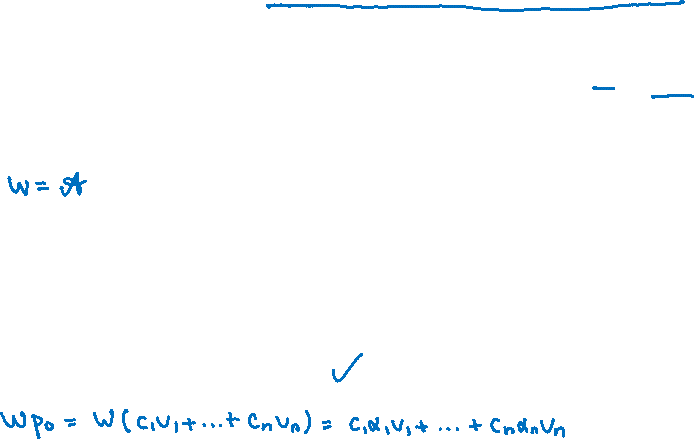 W = 𝒜
W p₀ = W ( c₁v₁ + ... + cₙvₙ ) = c₁α₁v₁ + ... + cₙαₙvₙ